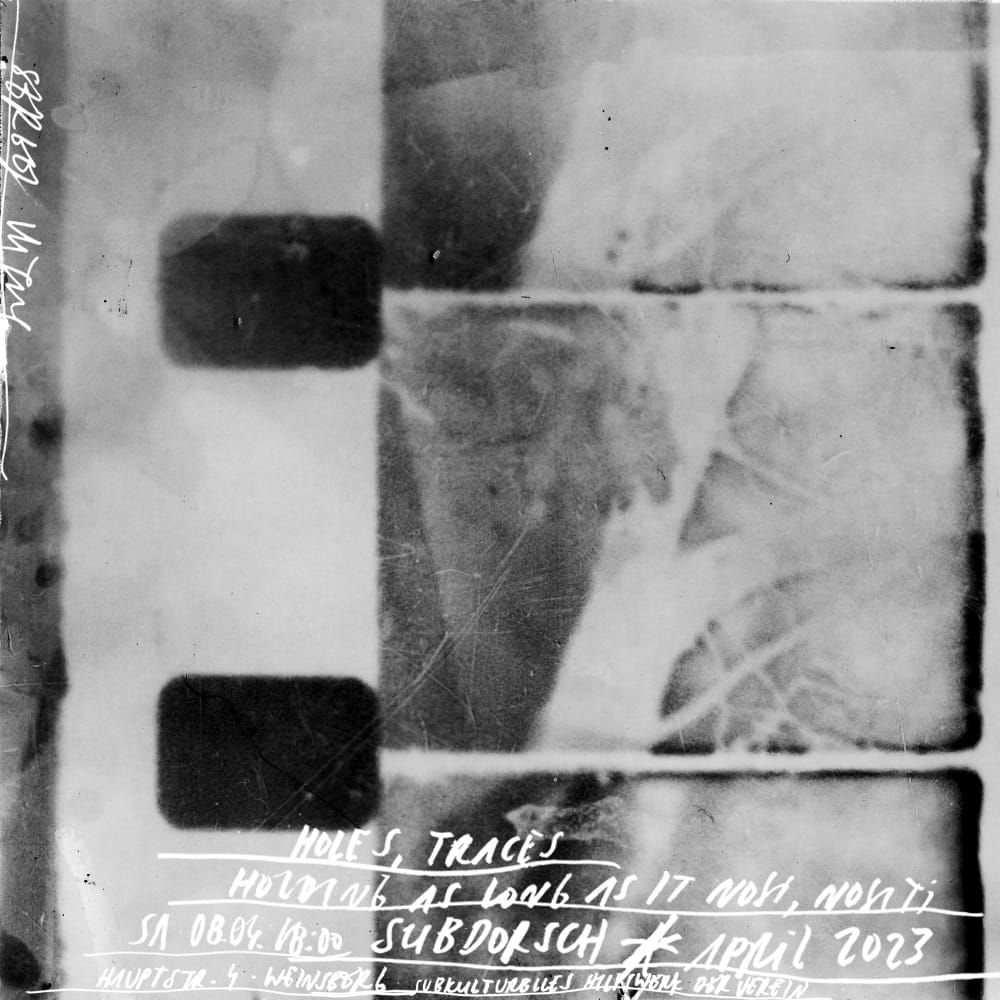 HOLES, TRACES
HOLDING AS LONG AS IT
SA 08.04. 18:00 SUBDORSCH * APRIL 2023
HAUPTSTR. 4 - WEINSBERG SUBKULTURELLES HILFSWERK DER VEREIN